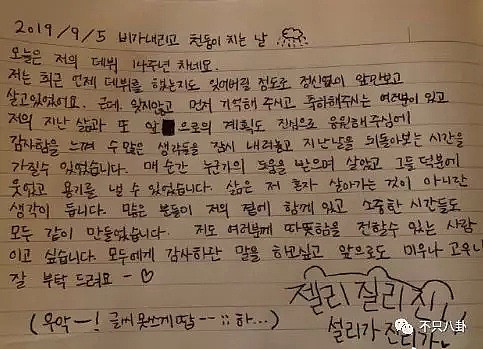 2019/9/5 비가내리고 천둥이 치는 날
오늘은 저의 데뷔 14주년 차네요.
저는 최근 언제 데뷔를 했는지도 잊어버릴 정도로 정신없이 앞만보고
살고있었어요. 근데, 잊지않고 먼저 기억해 주시고 축하해주시는 여러분이 있고
저의 지난 삶과 또 앞으로의 계획도 진심으로 응원해주심에
감사함을 느껴 수 많은 생각들을 잠시 내려놓고 지난날을 뒤돌아보는 시간을
가질수 있었습니다. 매 순간 누군가의 도움을 받으며 살았고 그들 덕분에
웃었고 용기를 낼 수 있었습니다. 삶은 저 혼자 살아가는 것이 아니란
생각이 듭니다. 많은 분들이 저의 곁에 함께 있고 소중한 시간들도
모두 같이 만들었습니다. 저도 여러분께 따뜻함을 전할수 있는 사람
이고 싶습니다. 모두에게 감사하단 말을 하고싶고 앞으로도 미우나 고우나
잘 부탁 드려요 - ♡
젤리 질리
설리가
(우악-! 글씨못쓰게땀-- ;; 하...)
不只八卦